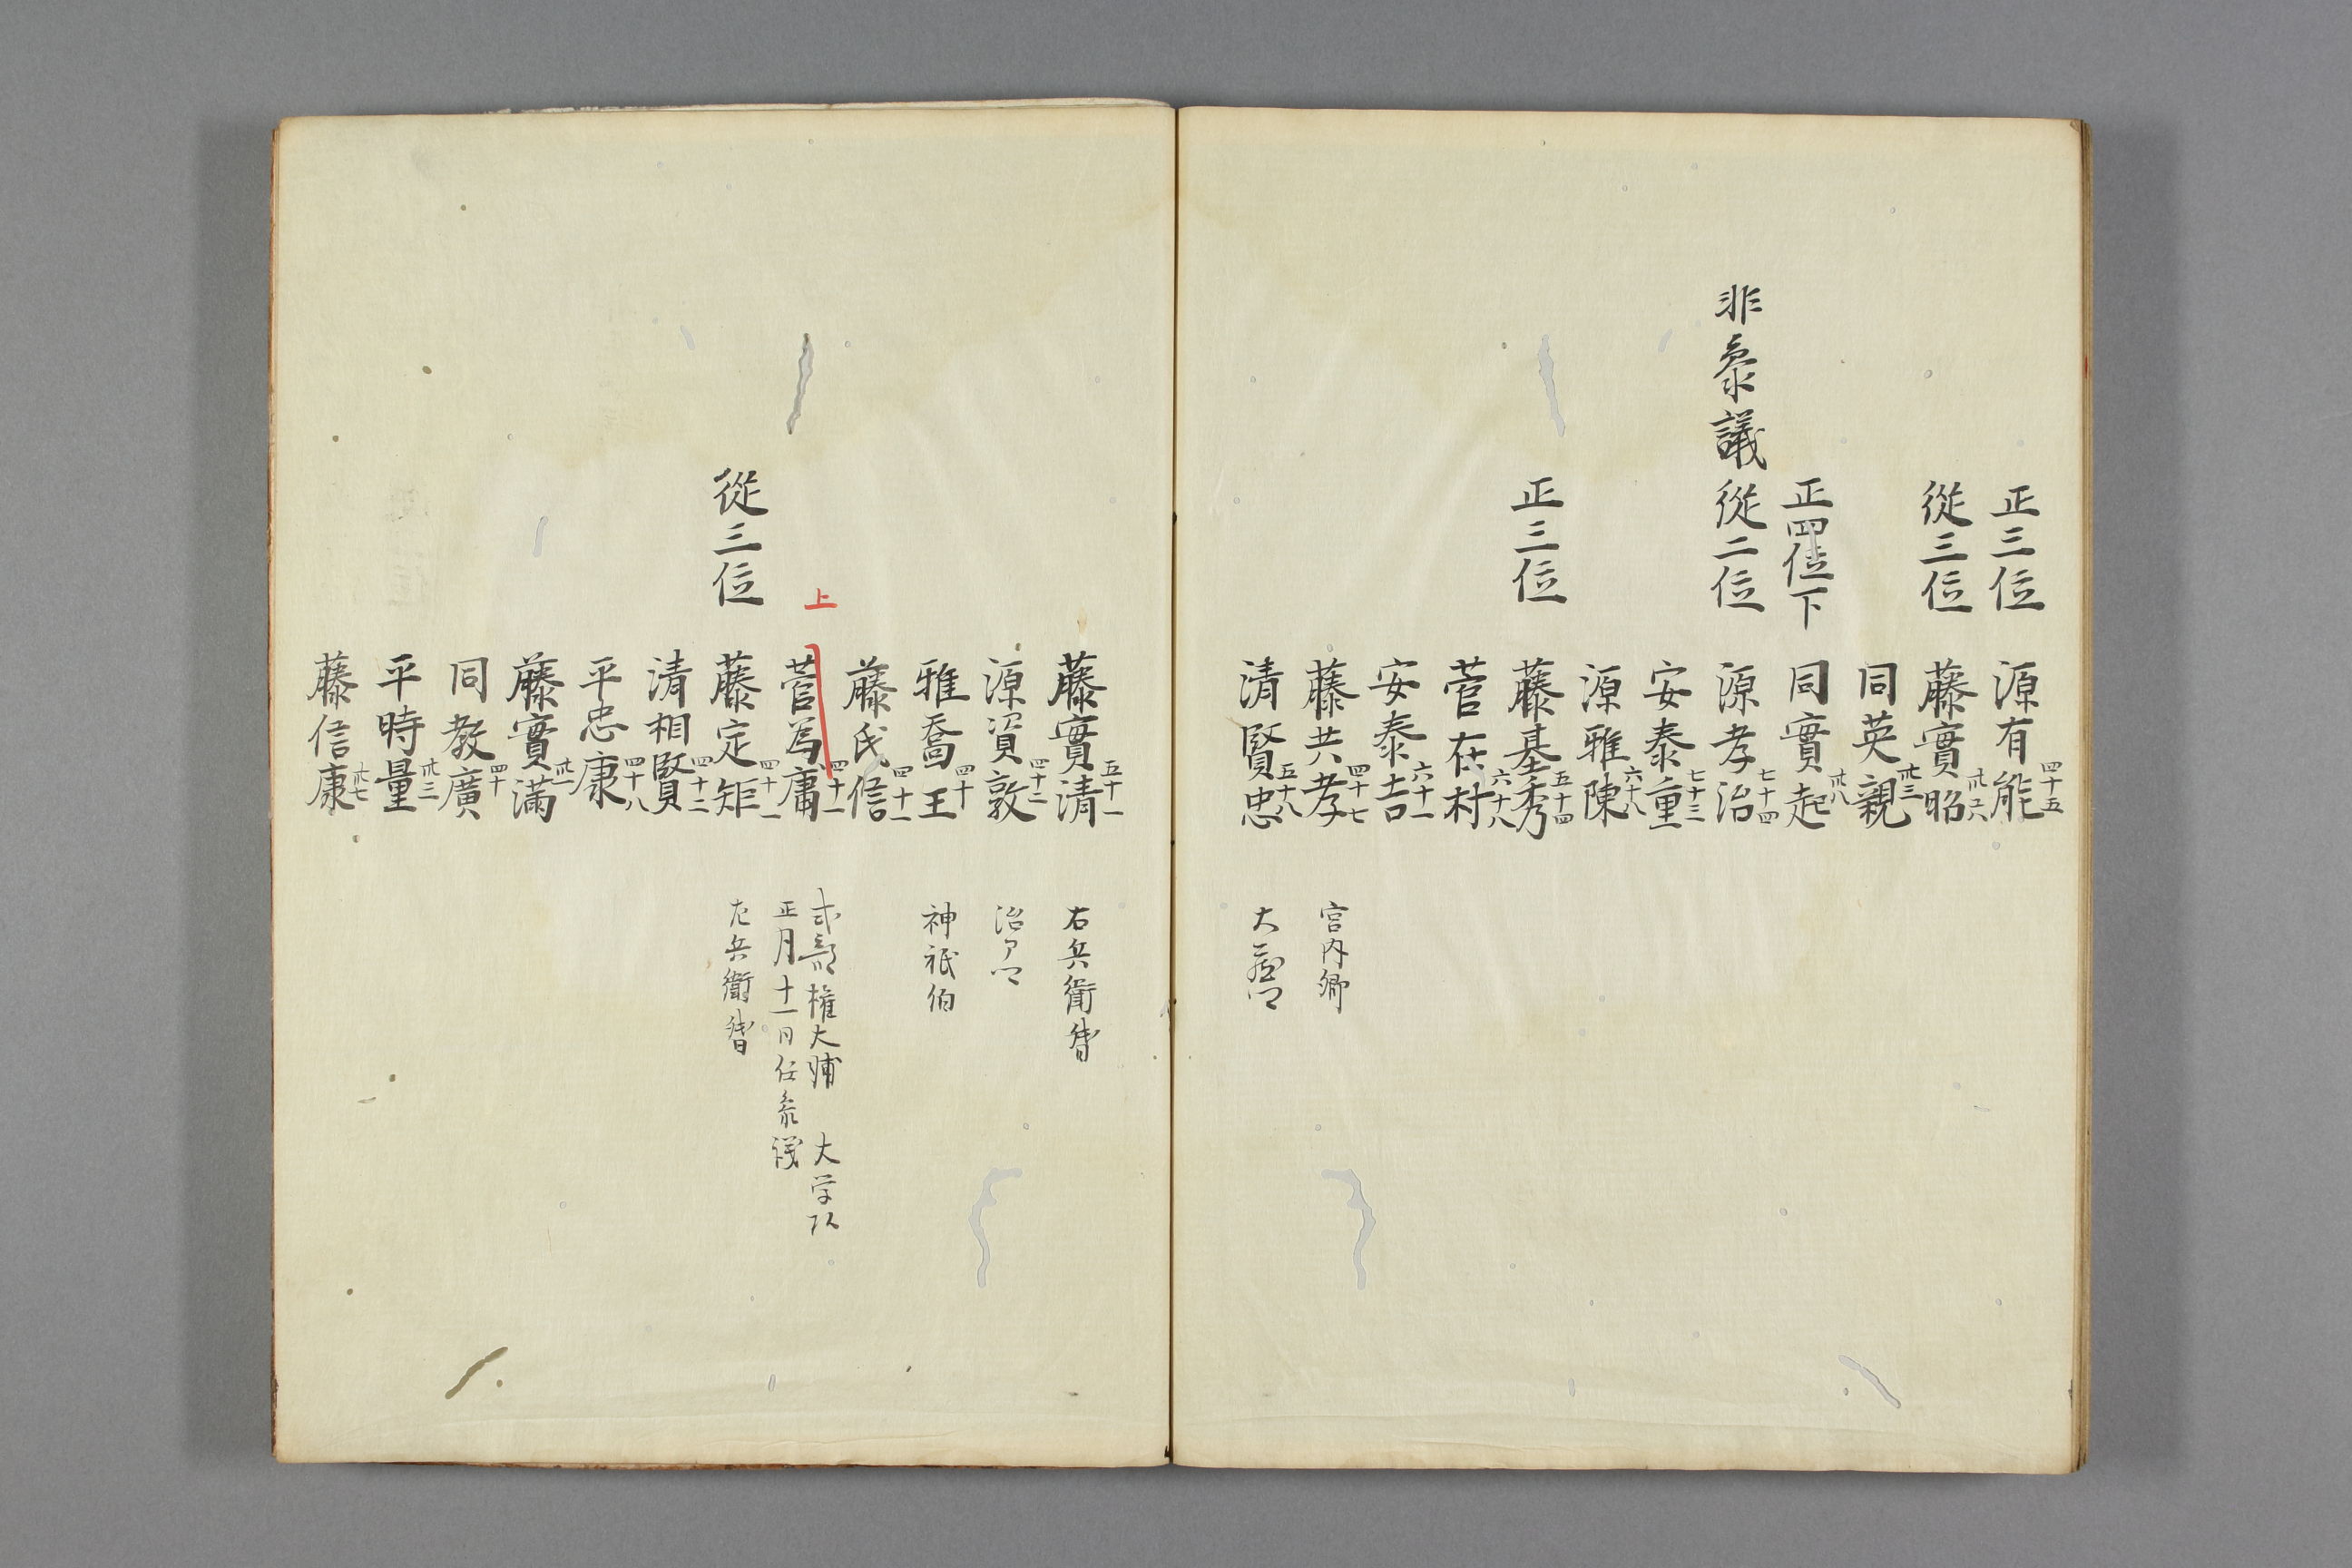 正三位 源有能 四十五
從三位 藤實昭 卅六
同英親 卅三
正四位下 同實起 卅八
非參議 從二位 源孝治 七十四
安泰重 七十三
源雅陳 六十八
正三位 藤基秀 五十四
菅在村 六十八
安泰吉 六十一
藤共孝 四十七 宮内卿
清賢忠 五十八 大蔵卿
藤實清 五十一 右兵衛督
源資敦 四十二 治部卿
雅喬王 四十 神祇伯
藤氏信 四十一
上
菅為庸 四十一 式部権大輔 大学頭
正月十一日任参議
從三位 藤定矩 四十一 左兵衛督
清相賢 四十二
平忠康 四十八
藤實満 卅一
同教廣 四十
平時量 卅三
藤信康 卅七